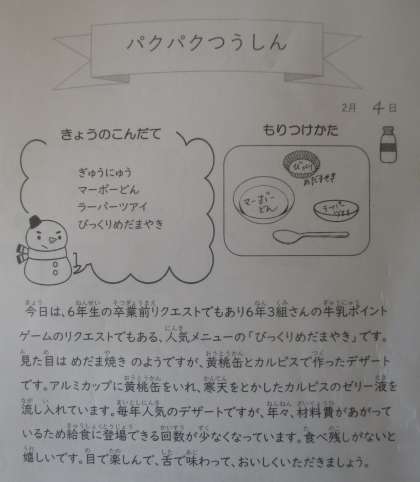 パクパクつうしん
2月 4日
きょうのこんだて
ぎゅうにゅう
マーボーどん
ラーパーツアイ
びっくりめだまやき
もりつけかた
びっくり
めだまやき
マーボー
どん
ラーパー
ツアイ
今日は、6年生の卒業前リクエストでもあり6年3組さんの牛乳ポイント
ゲームのリクエストでもある、人気メニューの「びっくりめだまやき」です。
見た目は めだま焼き のようですが、黄桃缶とカルピスで作ったデザート
です。アルミカップに黄桃缶をいれ、寒天をとかしたカルピスのゼリー液を
流し入れています。毎年人気のデザートですが、年々、材料費があがって
いるため給食に登場できる回数が少なくなっています。食べ残しがないと
嬉しいです。目で楽しんで、舌で味わって、おいしくいただきましょう。